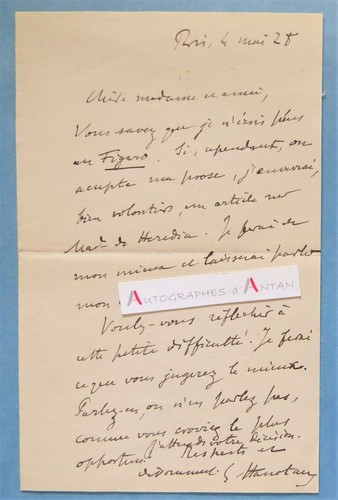 Paris, le mai 28
Chère madame et amie,
Vous savez que je n'écris plus
au Figaro. Si, cependant, on
accepte ma prose, j'enverrai,
bien volontiers, un article sur
Mad. de Heredia. Je ferai de
mon mieux et laisserai parler
mon
AUTOGRAPHES d'ANTAN
Voulez-vous réfléchir à
cette petite difficulté. Je ferai
ce que vous jugerez le mieux.
Parlez-en, ou n'en parlez pas,
comme vous croirez le plus
opportun. J'attends votre décision.
Respects et
dévouement G Hanotaux